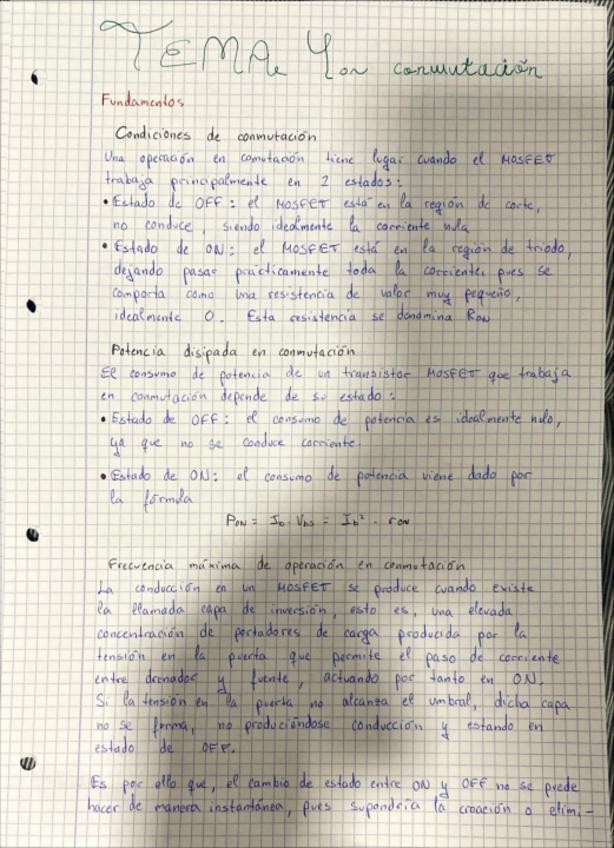 TEMA 4 en conmutación
Fundamentos
Condiciones de conmutación
Una operación en conmutación tiene lugar cuando el MOSFET
trabaja principalmente en 2 estados:
• Estado de OFF: el MOSFET está en la región de corte,
no conduce, siendo idealmente la corriente nula
• Estado de ON: el MOSFET está en la región de triodo,
dejando pasar prácticamente toda la corriente, pues se
comporta como una resistencia de valor muy pequeño,
idealmente 0. Esta resistencia se denomina RON
Potencia disipada en conmutación
El consumo de potencia de un transistor MOSFET que trabaja
en conmutación depende de su estado:
• Estado de OFF: el consumo de potencia es idealmente nulo,
ya que no se conduce corriente.
• Estado de ON: el consumo de potencia viene dado por
la fórmula
PON = ID · VDS = ID² · rON
Frecuencia máxima de operación en conmutación
La conducción en un MOSFET se produce cuando existe
la llamada capa de inversión, esto es, una elevada
concentración de portadores de carga producida por la
tensión en la puerta que permite el paso de corriente
entre drenador y fuente, actuando por tanto en ON.
Si la tensión en la puerta no alcanza el umbral, dicha capa
no se forma, no produciéndose conducción y estando en
estado de OFF.
Es por ello que, el cambio de estado entre ON y OFF no se puede
hacer de manera instantánea, pues supondría la creación o elimi-